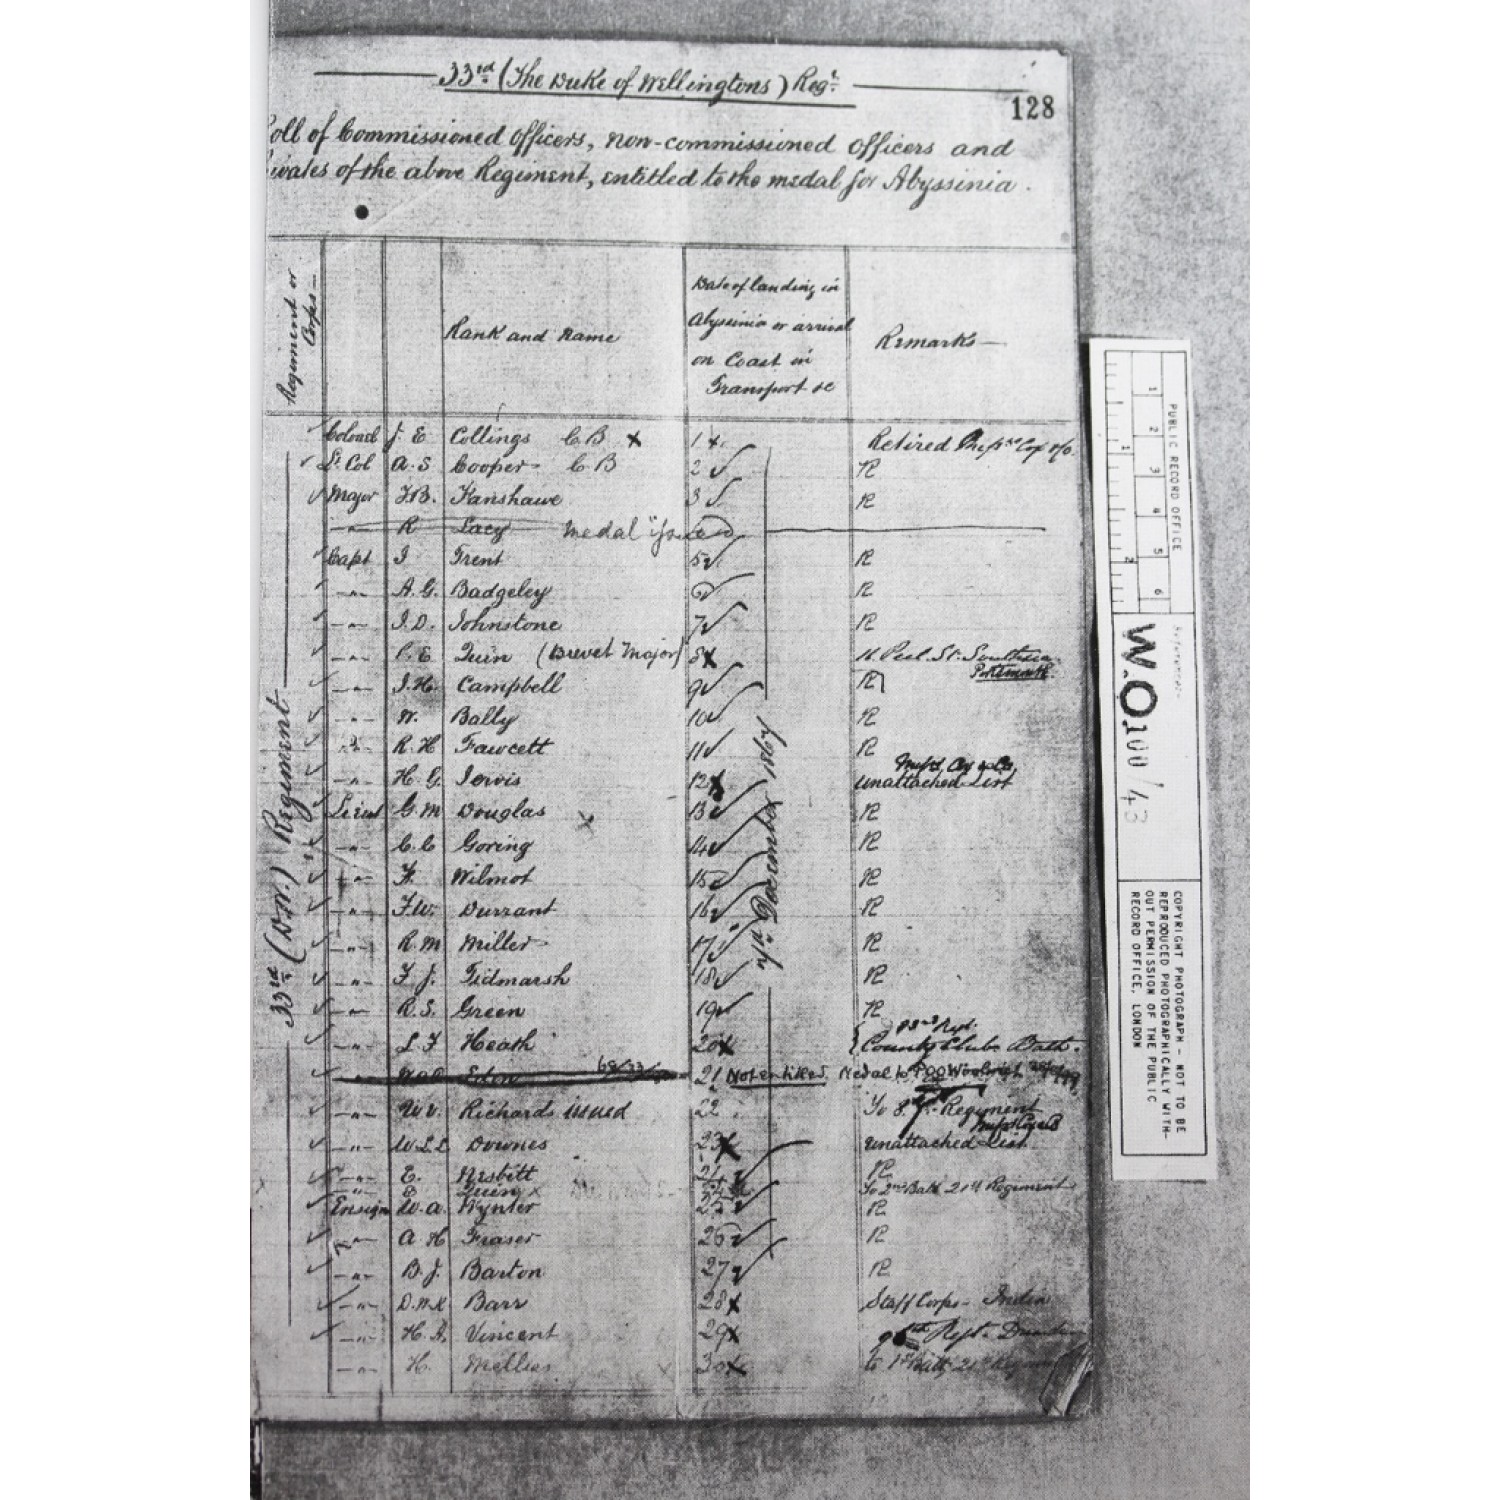 33rd (The Duke of Wellingtons) Regt
128
oll of Commissioned Officers, non-commissioned officers and
ivates of the above Regiment, entitled to the medal for Abyssinia.
Regiment or Corps
Rank and Name
Date of landing in Abyssinia or arrival on Coast in Transport &c
Remarks
33rd (D.W.) Regiment
7th December 1867
Colonel J. E Collings C B x 1 x Retired
Lt Col A. S Cooper C B 2 R
Major F.B. Fanshawe 3 R
-"- R Lacy medal issued
Capt I Trent 5 R
-"- A. G. Badgeley 6 R
-"- I. D. Johnstone 7 R
-"- C. E Quin (Brevet Major) 8 x Peel St Southsea Portsmouth
-"- I. H. Campbell 9 R
-"- W. Bally 10 R
-"- R. H Fawcett 11 R
-"- H. G. Jervis 12 x unattached List
Lieut G. M Douglas x 13 R
-"- C. C Goring 14 R
-"- F. Wilmot 15 R
-"- F.W. Durrant 16 R
-"- R. M Miller 17 R
-"- F J. Tidmarsh 18 R
-"- R. S. Green 19 R
-"- L F Heath 20 x County Club Bath.
-"- Eden 21 Not entitled Medal to Woolwich
-"- W. V. Richards issued 22 To Regiment
-"- W L L Downes 23 x unattached List
-"- E. Nesbitt 24 R
-"- E Quin x To 2nd Batt 21st Regiment
Ensign W. A. Wynter 25 R
-"- A H Fraser 26 R
-"- B. J. Barton 27 R
-"- D. W. K. Barr 28 x Staff Corps - India
-"- H. A. Vincent 29 x 96th Regt
-"- H. Mellis 30 x to 1st Batt 21st
PUBLIC RECORD OFFICE
1 2 3 4 5 6
1 2
Reference:-
W.O. 100/43
COPYRIGHT PHOTOGRAPH - NOT TO BE
REPRODUCED PHOTOGRAPHICALLY WITH-
OUT PERMISSION OF THE PUBLIC
RECORD OFFICE, LONDON